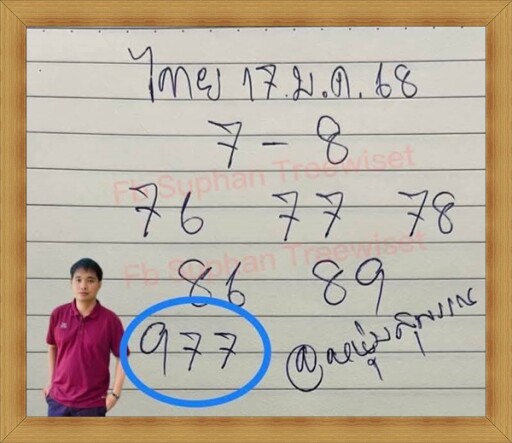 ไทย 17.ม.ค.68
7 - 8
Fb Suphan Treewiset
76 77 78
Fb Suphan Treewiset
86 89
977
@หนุ่มสุพรรณ